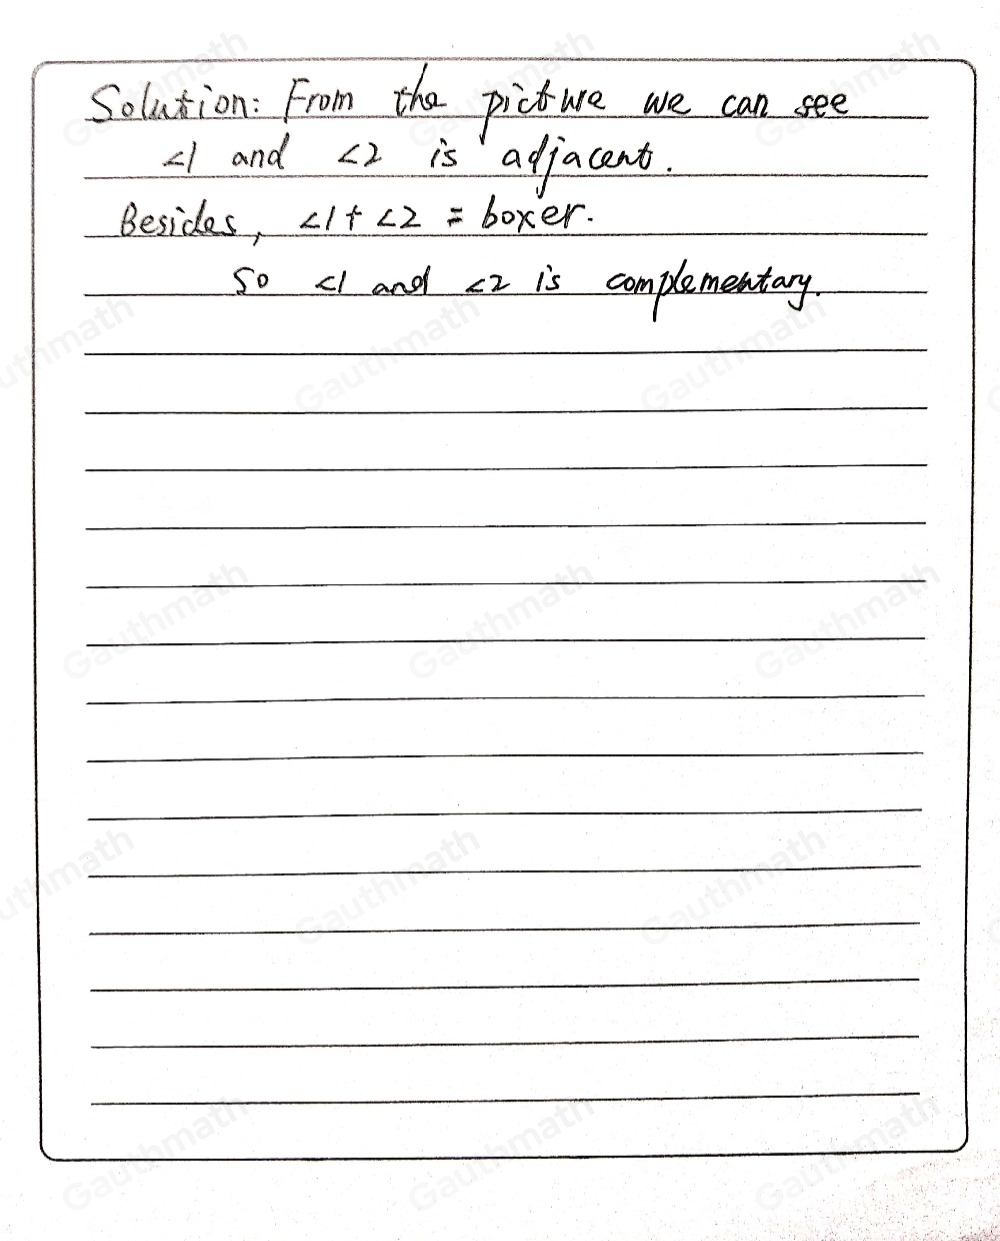 Solution: From the picture we can see
<1 and <2 is adjacent.
Besides, <1+ <2 = boxer.
So <1 and <2 is complementary.
Gauthmath